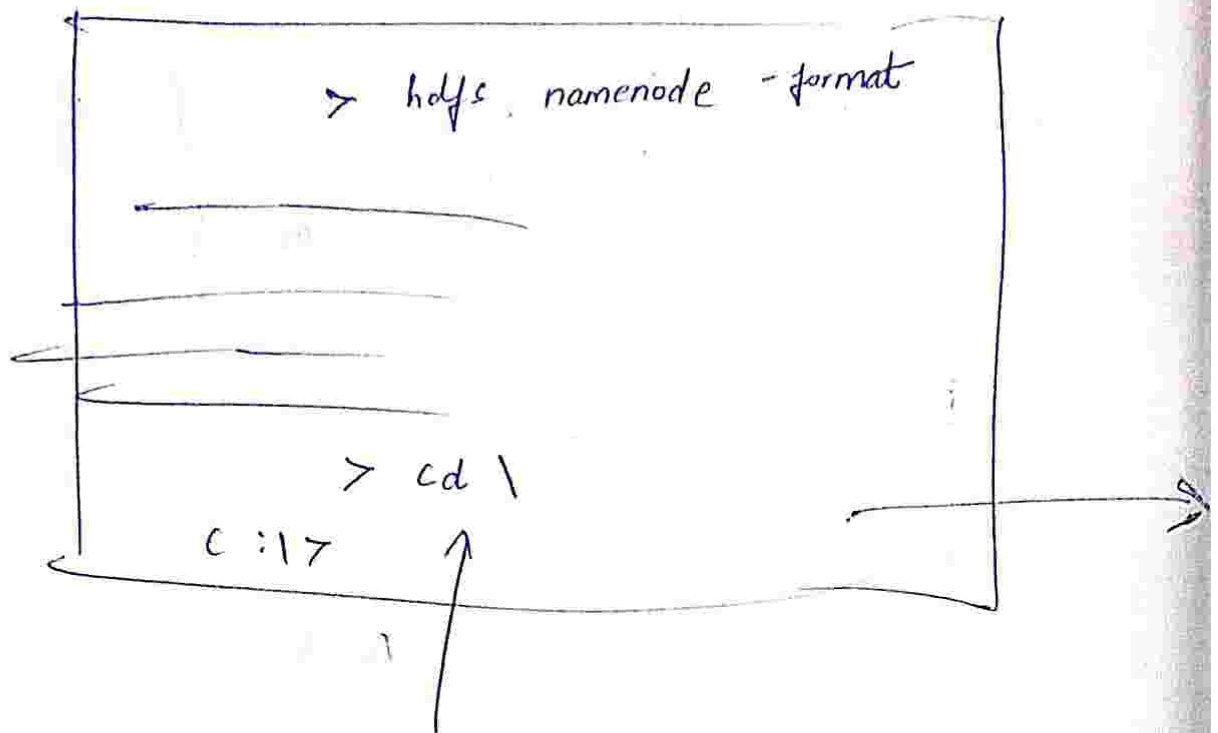 > hdfs namenode -format
> cd \
C:\>